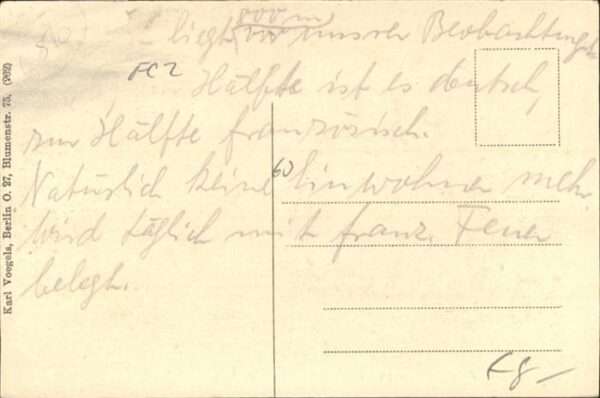 liegt vor unsrer Beobachtungs
FC2
Hälfte ist es deutsch,
zur Hälfte französisch.
60
Natürlich keine Einwohner mehr.
Wird täglich mit franz. Feuer
belegt.
Karl Voegels, Berlin O. 27, Blumenstr. 75. (262)